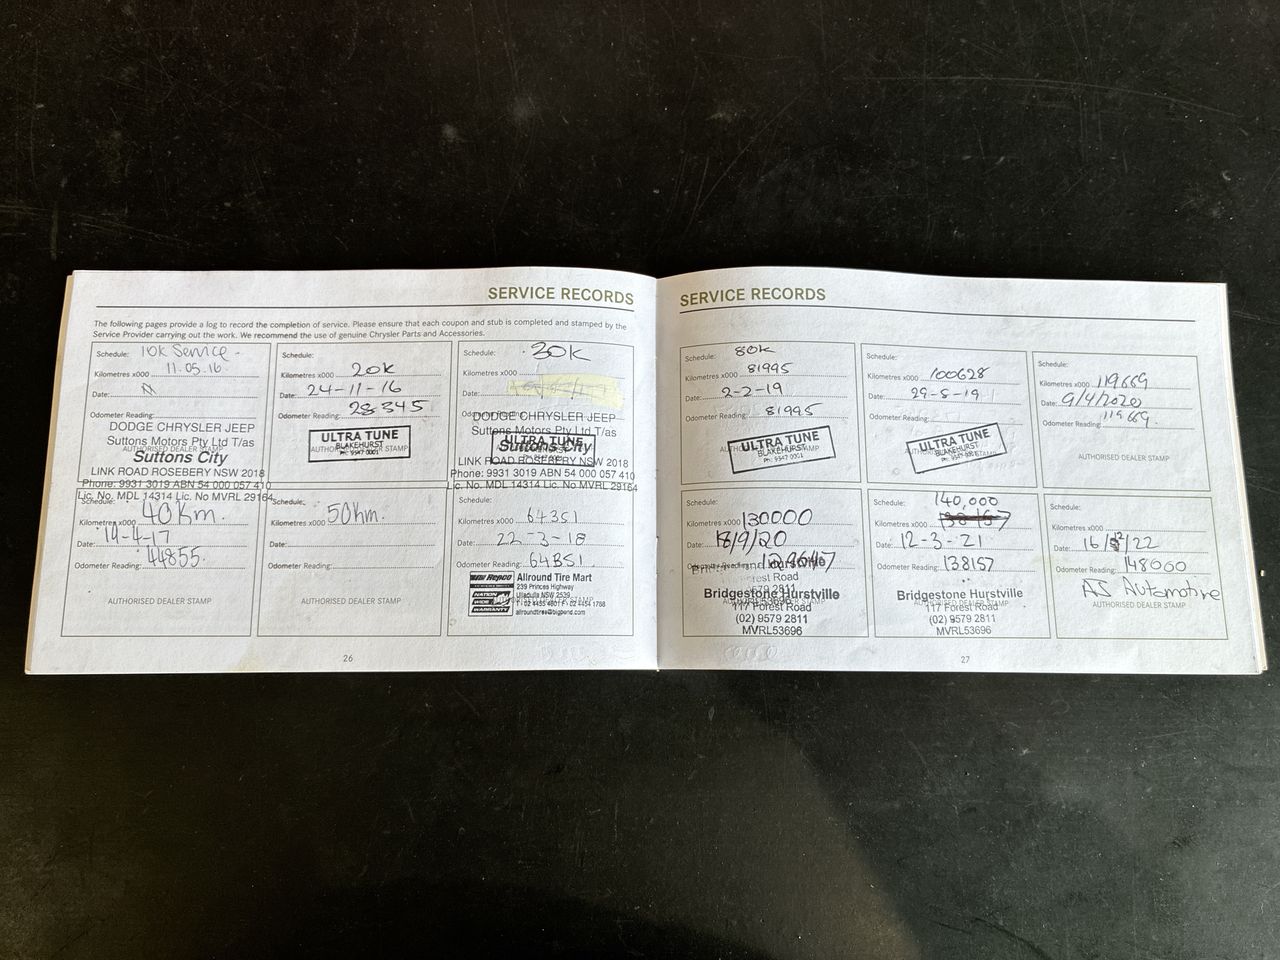 SERVICE RECORDS
The following pages provide a log to record the completion of service. Please ensure that each coupon and stub is completed and stamped by the
Service Provider carrying out the work. We recommend the use of genuine Chrysler Parts and Accessories.
Schedule: 10k Service -
Kilometres x000 11.05.16
Date:
Odometer Reading:
DODGE CHRYSLER JEEP
Suttons Motors Pty Ltd T/as
AUTHORISED DEALER STAMP
Suttons City
LINK ROAD ROSEBERY NSW 2018
Phone: 9931 3019 ABN 54 000 057 410
Lic. No. MDL 14314 Lic. No MVRL 29164
Schedule:
Kilometres x000 20k
Date: 24-11-16
Odometer Reading: 28345
ULTRA TUNE
BLAKEHURST
Ph: 9547 0001
AUTHORISED DEALER STAMP
Schedule: 30k
Kilometres x000
Date:
DODGE CHRYSLER JEEP
Suttons Motors Pty Ltd T/as
ULTRA TUNE
Suttons City
LINK ROAD ROSEBERY NSW 2018
Phone: 9931 3019 ABN 54 000 057 410
Lic. No. MDL 14314 Lic. No MVRL 29164
Schedule: 40km.
Kilometres x000
Date: 19-4-17
Odometer Reading: 44855.
AUTHORISED DEALER STAMP
Schedule:
Kilometres x000 50km.
Date:
Odometer Reading:
AUTHORISED DEALER STAMP
Schedule:
Kilometres x000 64351
Date: 22-3-18
Odometer Reading: 64351
Repco
NATION
WIDE
WARRANTY
Allround Tire Mart
239 Princes Highway
Ulladulla NSW 2539
allroundtires@bigpond.com
26
SERVICE RECORDS
Schedule: 80k
Kilometres x000 81995
Date: 2-2-19
Odometer Reading: 81995
ULTRA TUNE
BLAKEHURST
Ph: 9547 0001
Schedule:
Kilometres x000 100628
Date: 29-8-19
Odometer Reading:
ULTRA TUNE
BLAKEHURST
Schedule:
Kilometres x000 119669
Date: 9/4/2020
Odometer Reading: 119669.
AUTHORISED DEALER STAMP
Schedule:
Kilometres x000 130000
Date: 18/9/20
Odometer Reading: 129647
Bridgestone Hurstville
117 Forest Road
(02) 9579 2811
MVRL53696
Schedule: 140,000
Kilometres x000
Date: 12-3-21
Odometer Reading: 138157
Bridgestone Hurstville
AUTHORISED DEALER STAMP
117 Forest Road
(02) 9579 2811
MVRL53696
Schedule:
Kilometres x000
Date: 16/12/22
Odometer Reading: 148000
AS Automotive
AUTHORISED DEALER STAMP
27